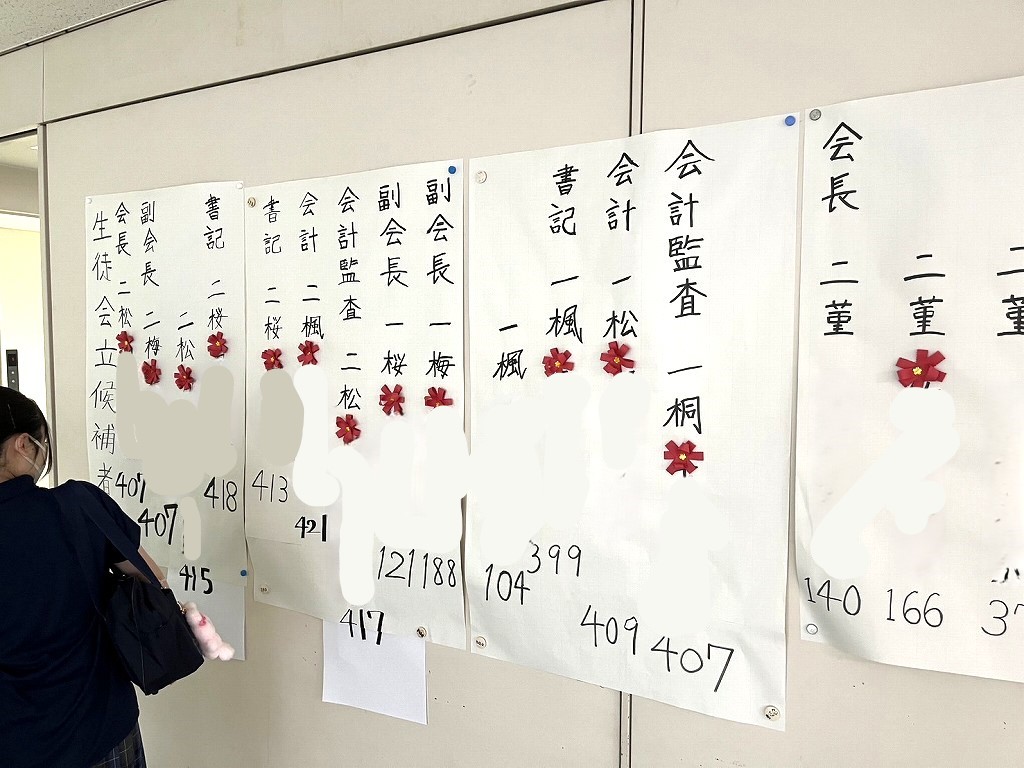 生徒会立候補者
会長 二松 407
副会長 二梅 407
二松 415
書記 二桜 418
書記 二桜 413
会計 二楓 421
会計監査 二松 417
副会長 一桜 121
副会長 一梅 188
一楓 104
書記 一楓 399
会計 一松 409
会計監査 一桐 407
会長 二菫 140
二菫 166